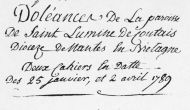 Doléances De La paroisse
De Saint Lumine de Coutais
Dioceze de Nantes en Bretagne
Deux Cahiers en Datte
Des 25 janvier, et 2 avril 1789